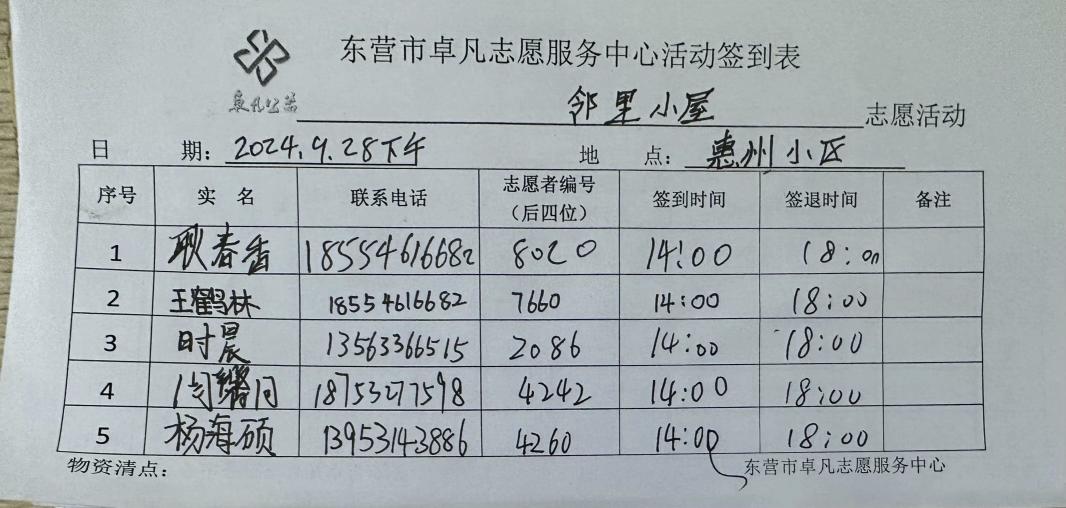 东营市卓凡志愿服务中心活动签到表
卓凡公益
邻里小屋 志愿活动
日 期：2024.9.28下午 地 点：惠州小区
序号 实 名 联系电话 志愿者编号（后四位） 签到时间 签退时间 备注
1 耿春香 18554616682 8020 14:00 18:00
2 王鹤林 18554616682 7660 14:00 18:00
3 时晨 13563366515 2086 14:00 18:00
4 18753277598 4242 14:00 18:00
5 杨海硕 13953143886 4260 14:00 18:00
物资清点： 东营市卓凡志愿服务中心